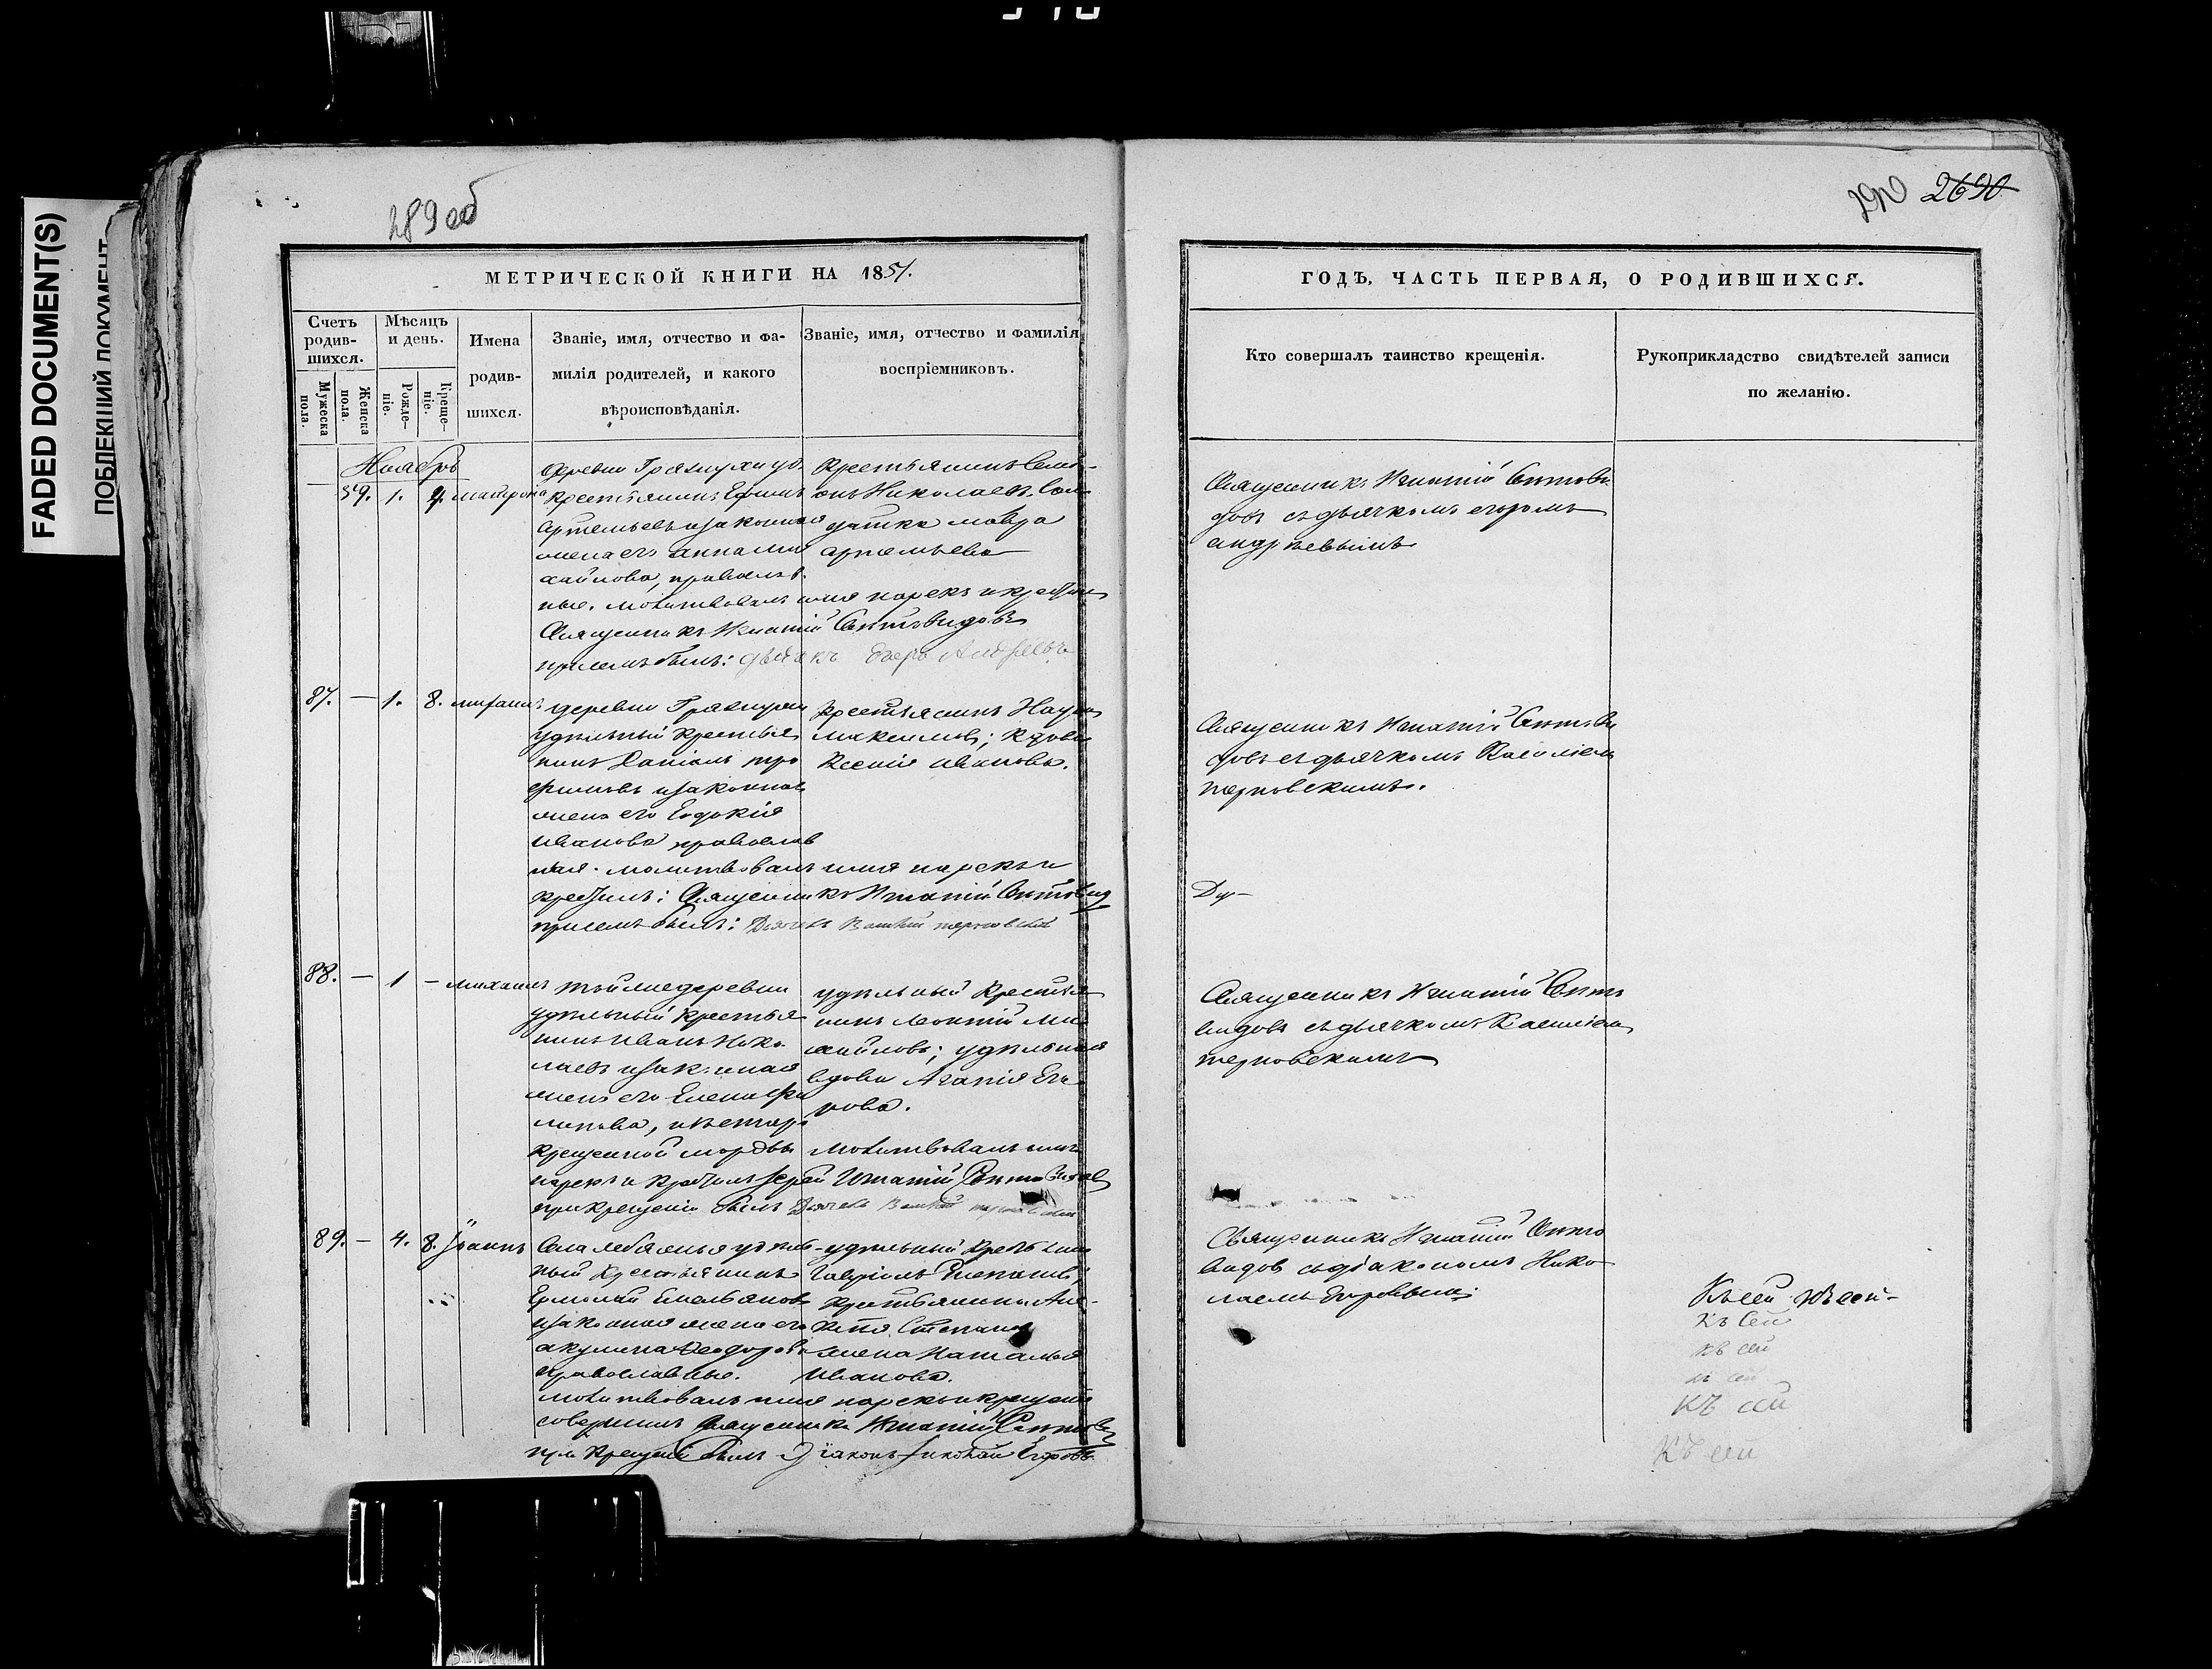 FADED DOCUMENT(S)
289 об
290 2690
МЕТРИЧЕСКОЙ КНИГИ НА 1851.
Счетъ родив-шихся.
Мужеска пола.
Женска пола.
Мѣсяцъ и день.
Рожде-ніе.
Креще-ніе.
Имена родив-шихся.
Званіе, имя, отчество и фа-
милія родителей, и какого
вѣроисповѣданія.
Званіе, имя, отчество и фамилія
воспріемниковъ.
Ноябрь
59. 1. 4. Матрона
деревни Грязнухи уд.
крестьянинъ Ефимъ
Артемьевъ и законная
жена его Анна Ми
хайлова, православ
ные. молитвовалъ имя нарекъ и крестилъ
Священникъ Игнатій
при семъ былъ: дьячекъ Егоръ Андреевъ
крестьянинъ Семі-
онъ Николаевъ. Сол
датка Мавра
Артемьева
87. — 1. 8. Михаилъ
деревни Грязнухи
удѣльный крестья
нинъ Даніилъ Тро
фимовъ и законная
жена его Евдокія
Иванова православ
ная. молитвовалъ имя нарекъ и
крестилъ: Священникъ Игнатій
при семъ былъ: Дьячекъ Василій Терновскій
крестьянинъ Наумъ
Максимовъ; вдова
Ксенія Иванова.
88. — 1 — Михаилъ
той же деревни
удѣльный крестья
нинъ Иванъ Нико
лаевъ и законная
жена его Елена Фи
липова, изъ старо
крещеной мордвы
молитвовалъ имя
нарекъ и крестилъ Іерей Игнатій
при крещеніи былъ Дьячекъ Василій Терновскій
удѣльный крестья
нинъ Леонтій Ми
хайловъ; удѣльная
вдова Агапія Его
рова.
89. — 4. 8. Іоаннъ
Села Лебяжья удѣль
ный крестьянинъ
Ермолай Емельяновъ
и законная жена его
Акулина Феодорова
православные.
молитвовалъ имя нарекъ и крещеніе
совершилъ Священникъ Игнатій
при крещеніи былъ Діаконъ Николай Егоровъ
удѣльный крестьянинъ
Гавріилъ
крестьянина Але-
ксѣя Степанова
жена Наталья
Иванова.
ГОДЪ, ЧАСТЬ ПЕРВАЯ, О РОДИВШИХСЯ.
Кто совершалъ таинство крещенія.
Рукоприкладство свидѣтелей записи
по желанію.
Священникъ Игнатій
съ дьячкомъ Егоромъ
Андреевымъ
Священникъ Игнатій
съ дьячкомъ Василіемъ
Терновскимъ.
Священникъ Игнатій
съ дьячкомъ Василіемъ
Терновскимъ
Священникъ Игнатій
съ діакономъ Нико
лаемъ Егоровымъ
Къ сей къ сей
Къ Сей
къ сей
къ сей
Къ сей
Къ сей